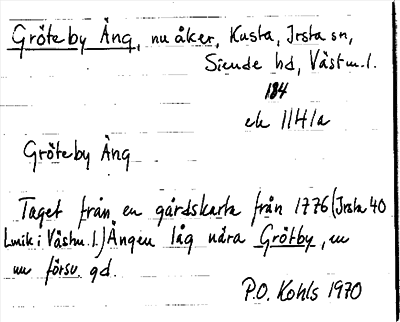 Gröteby Äng, nu åker, Kusta, Irsta sn,
Siende hd, Västm. l.
184
ek 1141a
Gröteby Äng
Taget från en gårdskarta från 1776 (Irsta 40
Lmk i Västm. l.) Ängen låg nära Grötby, en
nu försv. gd.
P.O. Kohls 1970